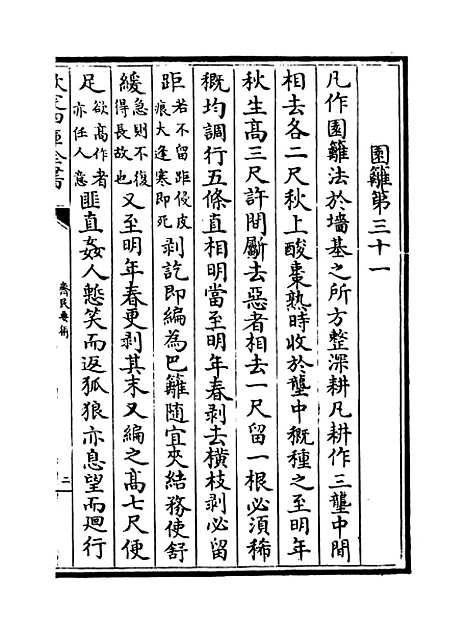 園籬第三十一
凡作園籬法於墻基之所方整深耕凡耕作三壟中間
相去各二尺秋上酸棗熟時收於壟中穊種之至明年
秋生髙三尺許間斸去惡者相去一尺留一根必湏稀
穊均調行五條直相明當至明年春剥去横枝剥必留
距若不留距侵皮痕大逢寒即死剥訖即編為巴籬随宜夾縛務使舒
緩急則不復得長故也又至明年春更剥其末又編之髙七尺便
足欲髙作者亦任人意匪直姦人慙笑而返狐狼亦息望而廻行
欽定四庫全書
齊民要術
二